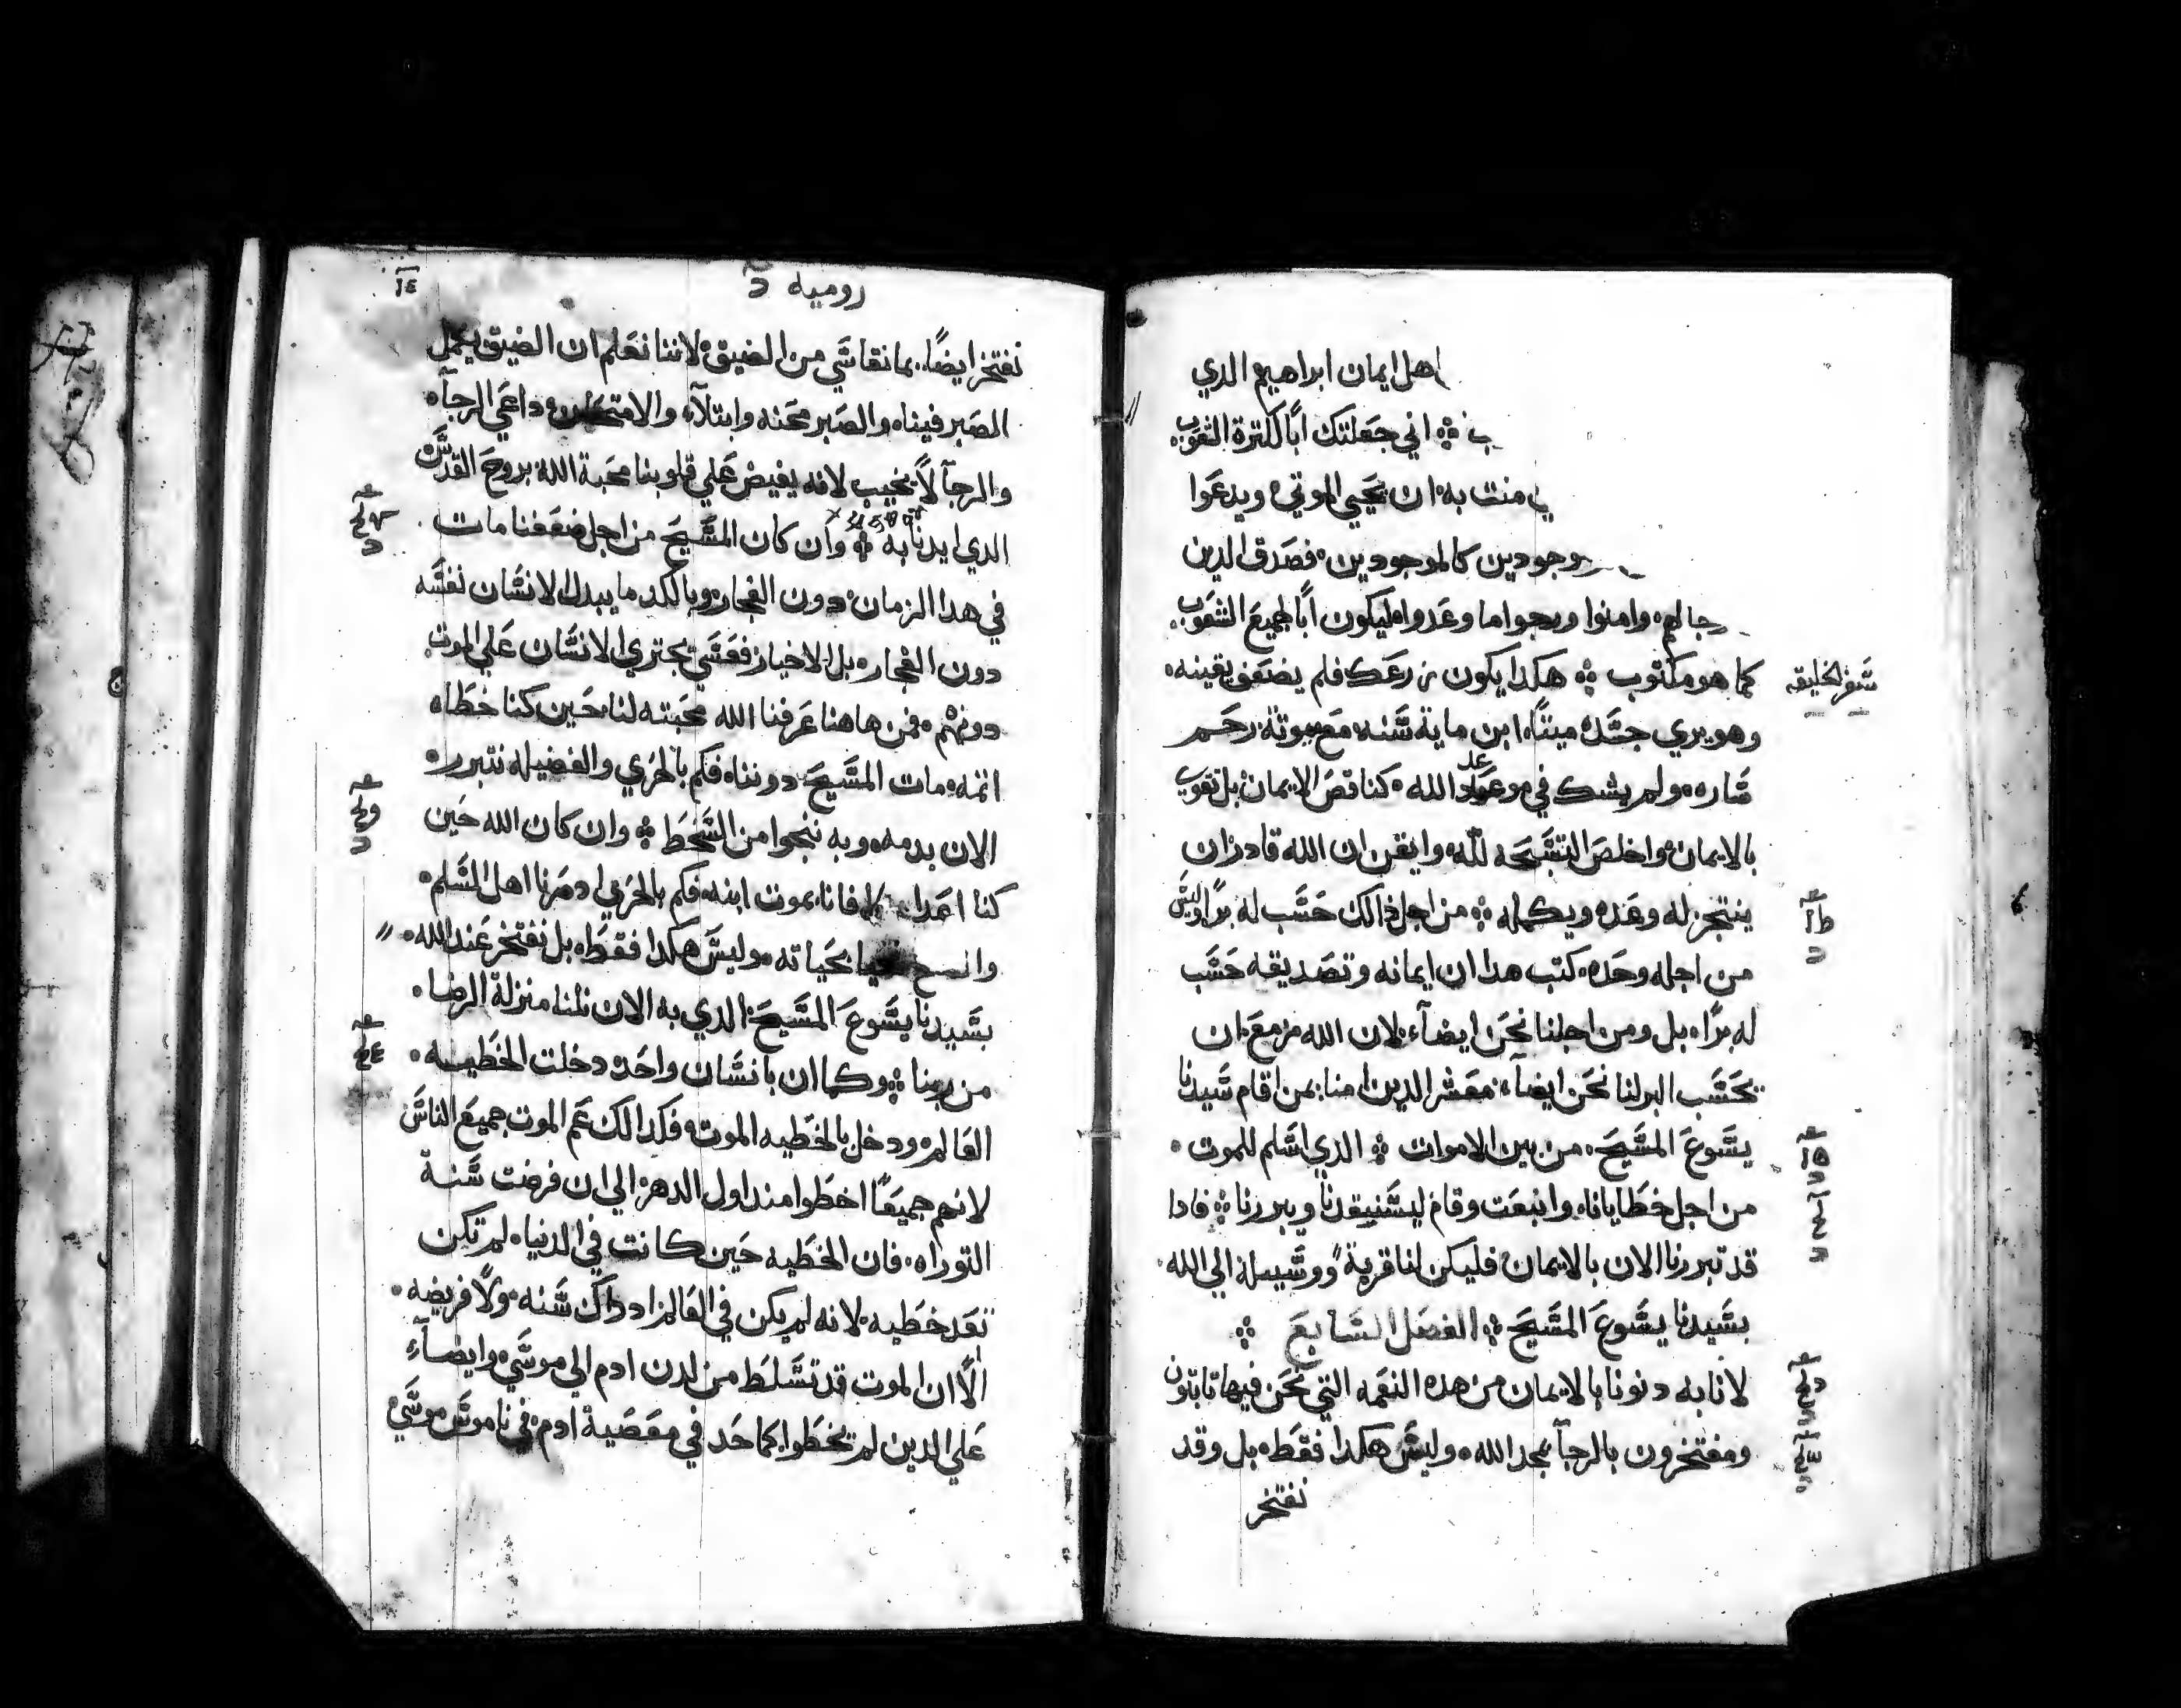 اهل ايمان ابراهيم الدي
ب ۞ اني جعلتك ابًا لكثرة الشعوب
منت به ان يحيي الموتي ويدعوا
وجودين كالموجودين فصدق الدين
وامنوا ورجوا ما وعدوا ليكون ابًا لجميع الشعوب
كما هو مكتوب ۞ هكدا يكون زرعك فلم يضعف يقينه
سفر الخليقه
وهو يري جسده ميتًا ابن ماية سنه مع ميوتة رحم
ساره ولم يشك في موعد الله كناقص الايمان بل تقوي
بالايمان واخلص التسبحه لله وايقن ان الله قادر ان
ينتجز له وعده ويكمله ۞ من اجل ذالك حسب له برًا وليس
من اجله وحده كتب هدا ان ايمانه وتصديقه حسب
له برًا بل ومن اجلنا نحن ايضآ لان الله مزمع ان
يحسب البر لنا نحن ايضآ معشر الدين امنا بمن اقام سيدنا
يسوع المسيح من بين الاموات ۞ الدي اسلم للموت
من اجل خطايانا وانبعت وقام ليستنيقدنا ويبررنا ۞ فادا
قد تبررنا الان بالايمان فليكن لنا قربة ووسيلة الي الله
بسيدنا يسوع المسيح ۞ الفصل السابع ۞
لانا به دنونا بالايمان من هده النعمه التي نحن فيها تابتون
ومفتخرون بالرجآ بمجد الله وليس هكدا فقط بل وقد
نفتخر
روميه
١٤
نفتخر ايضًا بما نقاسي من الضيق لاننا نعلم ان الضيق يكمل
الصبر فينا والصبر محنه وابتلآ والامتحان داعي الرجآ
والرجآ لا يخيب لانه يفيض علي قلوبنا محبة الله بروح القدس
الدي ايدنا به ۞ وان كان المسيح من اجل ضعفنا مات
في هدا الزمان دون الفجار وبالكد ما يبدل الانسان نفسه
دون الفجار بل الاخيار فعسي يجتري الانسان علي الموت
دونهم فمن هاهنا عرفنا الله محبته لنا حين كنا خطاه
اتمه مات المسيح دوننا فكم بالحري والفضيله نتبرر
الان بدمه وبه ننجوا من السخط ۞ وان كان الله حين
كنا اعدا فانا بموت ابنه فكم بالحري اد صرنا اهل السلم
بحياته وليس هكدا فقط بل نفتخر عند الله
بسيدنا يسوع المسيح الدي به الان نلنا منزلة الرضا
من ربنا ۞ وكما ان بانسان واحد دخلت الخطيه
العالم ودخل بالخطيه الموت فكدالك عم الموت جميع الناس
لانهم جميعًا اخطوا مند اول الدهر الي ان فرضت سنة
التوراه فان الخطيه حين كانت في الدنيا لم تكن
تعد خطيه لانه لم يكن في العالم اد داك سنه ولا فريضه
الا ان الموت قد تسلط من لدن ادم الي موسي وايضآ
علي الدين لم يخطوا كما حد في معصية ادم في ناموس موسي